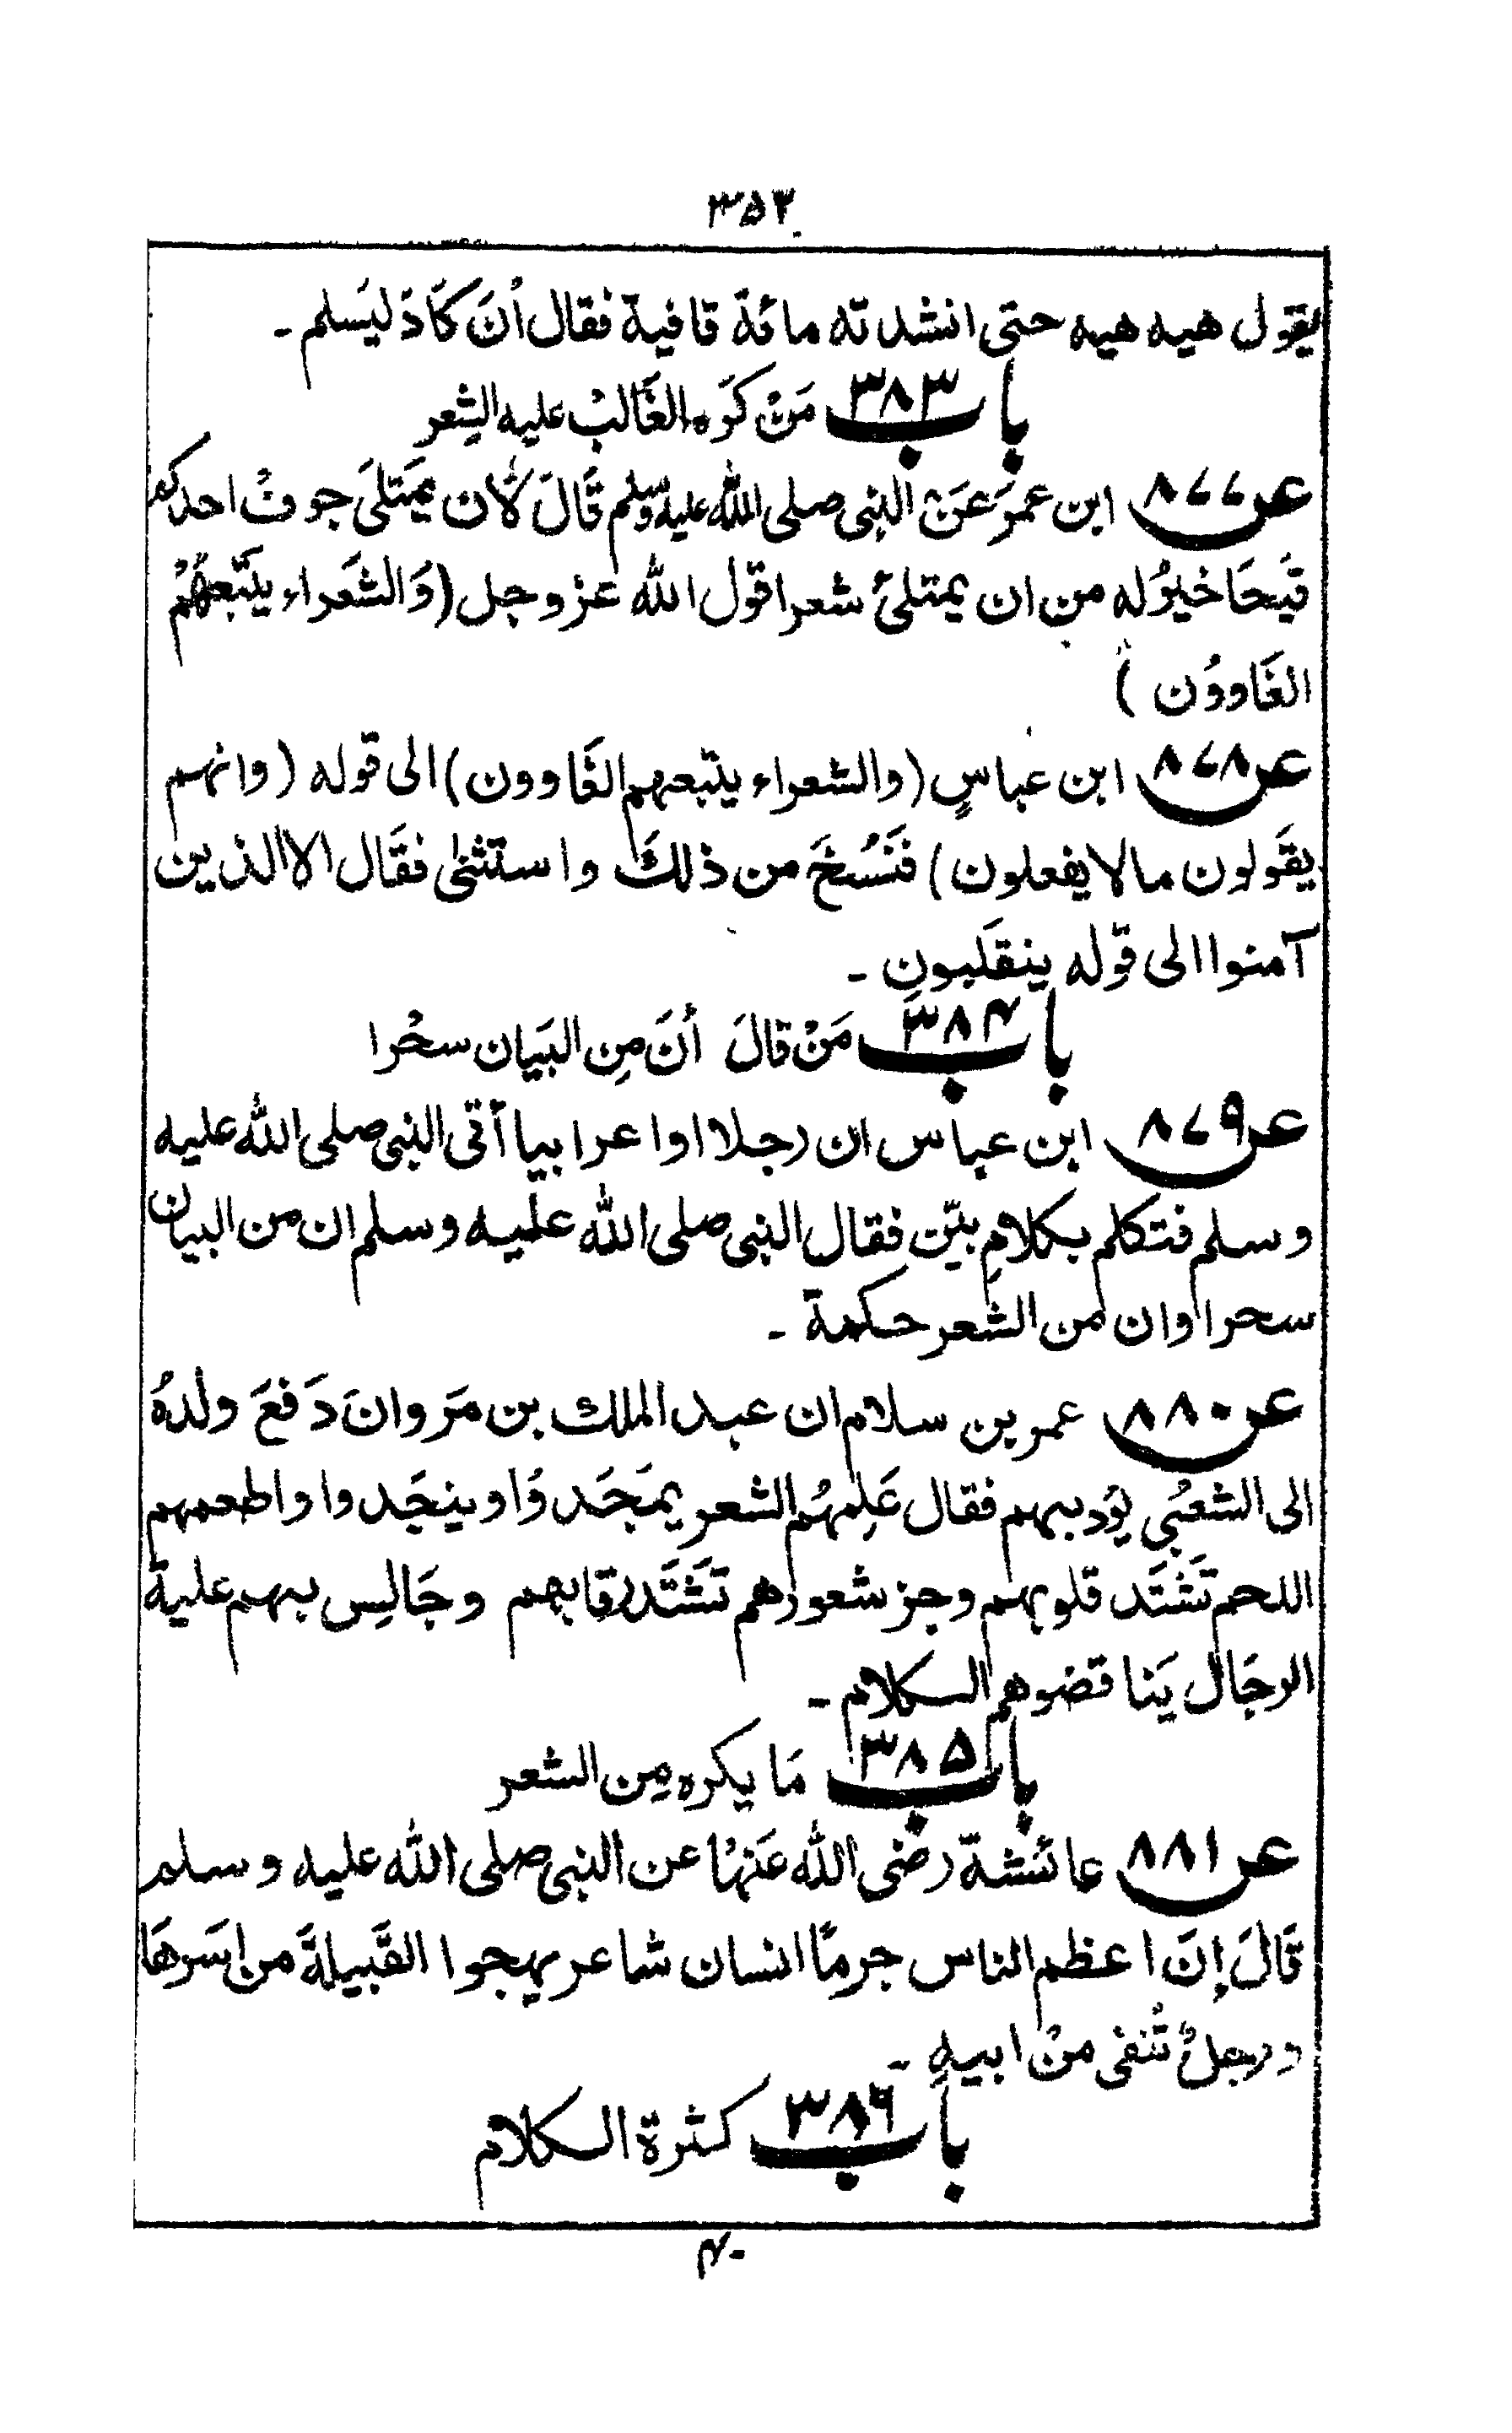 ۳۵۲
يقول هيه هيه حتى انشد ته مائة قافية فقال أنَ كَادَ ليَسلم ـ
باب ۳۸۳ مَنْ كَرَه الغَالبْ عليه الشعر
عن ۸۷۷ ابن عمَر عَنْ النبى صلى الله عليه وسلم قَالَ لأن يمَتلَى جوفُ احدكم
قَيحَا خيرُله من ان يمتلئ شعرا قول الله عز وجل (وَالشعَراء يتَبعهُمْ
الغَاووُن )
عن ۸۷۸ ابن عباسٍ (والشعراء يتبعهم الغَاوون) الى قوله (وانهم
يقَولون مالا يفعلون) فنَسُخَ من ذلكَ واستثنى فقَال الا الذين
آمنوا الى قوله ينقَلبون ـ
باب ۳۸۴ مَنْ قالَ أنَ مِن البَيان سحْرا
عن ۸۷۹ ابن عباس ان رجلا اوا عرابيا أتى النبى صلى الله عليه
وسلم فتكلم بكلامٍ بيّن فقال النبى صلى الله عليه وسلم ان من البيان
سحرا وان من الشعر حكمة ـ
عن ۸۸۰ عمر بن سلام ان عبد الملك بن مَروانَ دَفعَ ولَدهُ
الى الشعبُى يؤدبهم فقال عَلِمهُم الشعر يمَجَدوُا وينجَدوا واطعمهم
اللحم تَشْتَد قلوبهم وجز شعورهم تَشْتَد رقابهم وجَالِس بهم علية
الرجَال يَنا قضوهم الكلام ـ
باب ۳۸۵ مَا يكره مِن الشعر
عن ۸۸۱ عائشة رضى الله عَنهُا عن النبى صلى الله عليه وسلم
قَالَ إنَ اعظم الناس جرمًا انسان شاعر يهجوا القَبيلةَ من اسَرهَا
ورجلٌ تُنفى منْ ابيهِ ـ
باب ۳۸۶ كثرة الكلام
۴۰